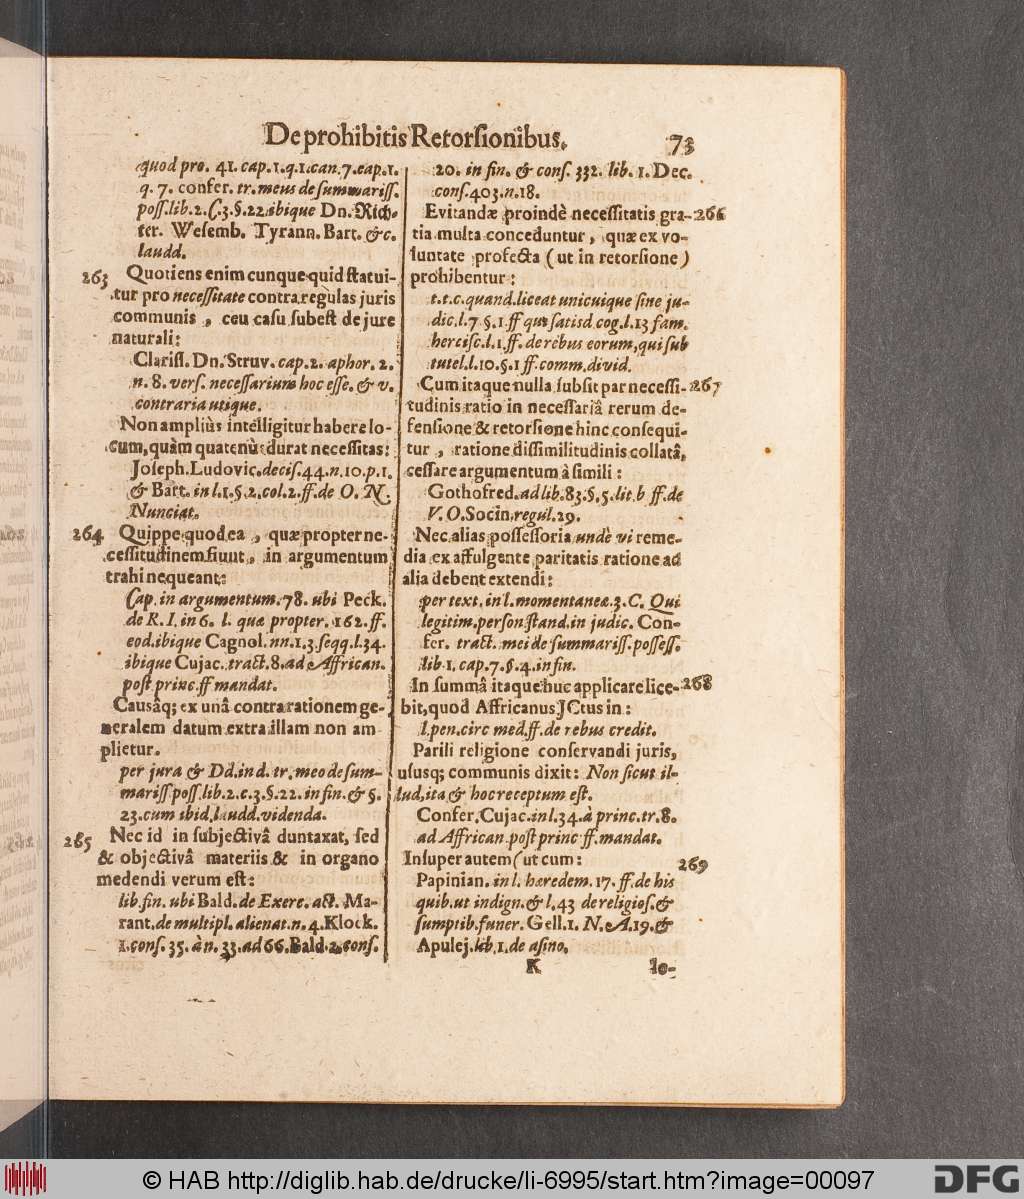 De prohibitis Retorſionibus. 73
quod pro. 41. cap. 1. q. 1. can. 7. cap. 1.
q. 7. confer. tr. meus de ſummariſſ.
poſſ. lib. 2. C. 3. §. 22. ibique Dn. Rich-
ter. Weſemb. Tyrann. Bart. &c.
laudd.
263 Quotiens enim cunque quid ſtatui-
tur pro neceſſitate contra regulas juris
communis, ceu caſu ſubeſt de jure
naturali:
Clariſſ. Dn. Struv. cap. 2. aphor. 2.
n. 8. verſ. neceſſarium hoc eſſe. & v.
contraria utique.
Non ampliùs intelligitur habere lo-
cum, quàm quatenùs durat neceſſitas:
Joſeph. Ludovic. deciſ. 44. n. 10. p. 1.
& Bart. in l. 1. §. 2. col. 2. ff. de O. N.
Nunciat.
264 Quippe quod ea, quæ propter ne-
ceſſitudinem fiunt, in argumentum
trahi nequeant:
Cap. in argumentum. 78. ubi Peck.
de R. I. in 6. l. quæ propter. 162. ff.
eod. ibique Cagnol. nn. 1. 3. ſeqq. l. 34.
ibique Cujac. tract. 8. ad Affrican.
poſt princ. ff mandat.
Causâq; ex unâ contra rationem ge-
neralem datum extra illam non am
plietur.
per jura & Dd. in d. tr. meo de ſum-
mariſſ poſſ. lib. 2. c. 3. §. 22. in fin. & §.
23. cum ibid. laudd. videnda.
265 Nec id in ſubjectivâ duntaxat, ſed
& objectivâ materiis & in organo
medendi verum eſt:
lib. fin. ubi Bald. de Exerc. act. Ma-
rant. de multipl. alienat. n. 4. Klock.
1. conſ. 35. à n. 33. ad 66. Bald. 2. conſ.
20. in fin. & conſ. 332. lib. 1. Dec.
conſ. 403. n. 18.
Evitandæ proindè neceſſitatis gra- 266
tia multa conceduntur, quæ ex vo-
luntate profecta (ut in retorſione)
prohibentur:
t. t. c. quand. liceat unicuique ſine ju-
dic. l. 7 §. 1 ff qui ſatisd cog. l. 13 fam.
herciſc. l. 1. ff. de rebus eorum, qui ſub
tutel. l. 10. §. 1 ff. comm. divid.
Cum itaque nulla ſubſit par neceſſi- 267
tudinis ratio in neceſſariâ rerum de-
fenſione & retorſione hinc conſequi-
tur, ratione diſſimilitudinis collatâ,
ceſſare argumentum à ſimili:
Gothofred. ad lib. 83. §. 5. lit. b ff. de
V. O. Socin. regul. 29.
Nec alias poſſeſſoria undè vi reme-
dia ex affulgente paritatis ratione ad
alia debent extendi:
per text. in l. momentaneæ. 3. C. Qui
legitim. perſon ſtand. in judic. Con-
fer. tract. mei de ſummariſſ. poſſeſſ.
lib. 1. cap. 7. §. 4. in fin.
In ſummâ itaque huc applicare lice- 268
bit, quod Affricanus JCtus in:
l. pen. circ med. ff. de rebus credit.
Parili religione conſervandi juris,
uſusq; communis dixit: Non ſicut il-
lud, ita & hoc receptum eſt.
Confer. Cujac. in l. 34. à princ. tr. 8.
ad Affrican. poſt princ ff. mandat.
Inſuper autem (ut cum: 269
Papinian. in l. hæredem. 17. ff. de his
quib. ut indign. & l. 43 de religioſ. &
ſumptib. funer. Gell. 1. N. A. 19. &
Apulej. lib. 1. de aſino.
K lo-
© HAB http://diglib.hab.de/drucke/li-6995/start.htm?image=00097
DFG